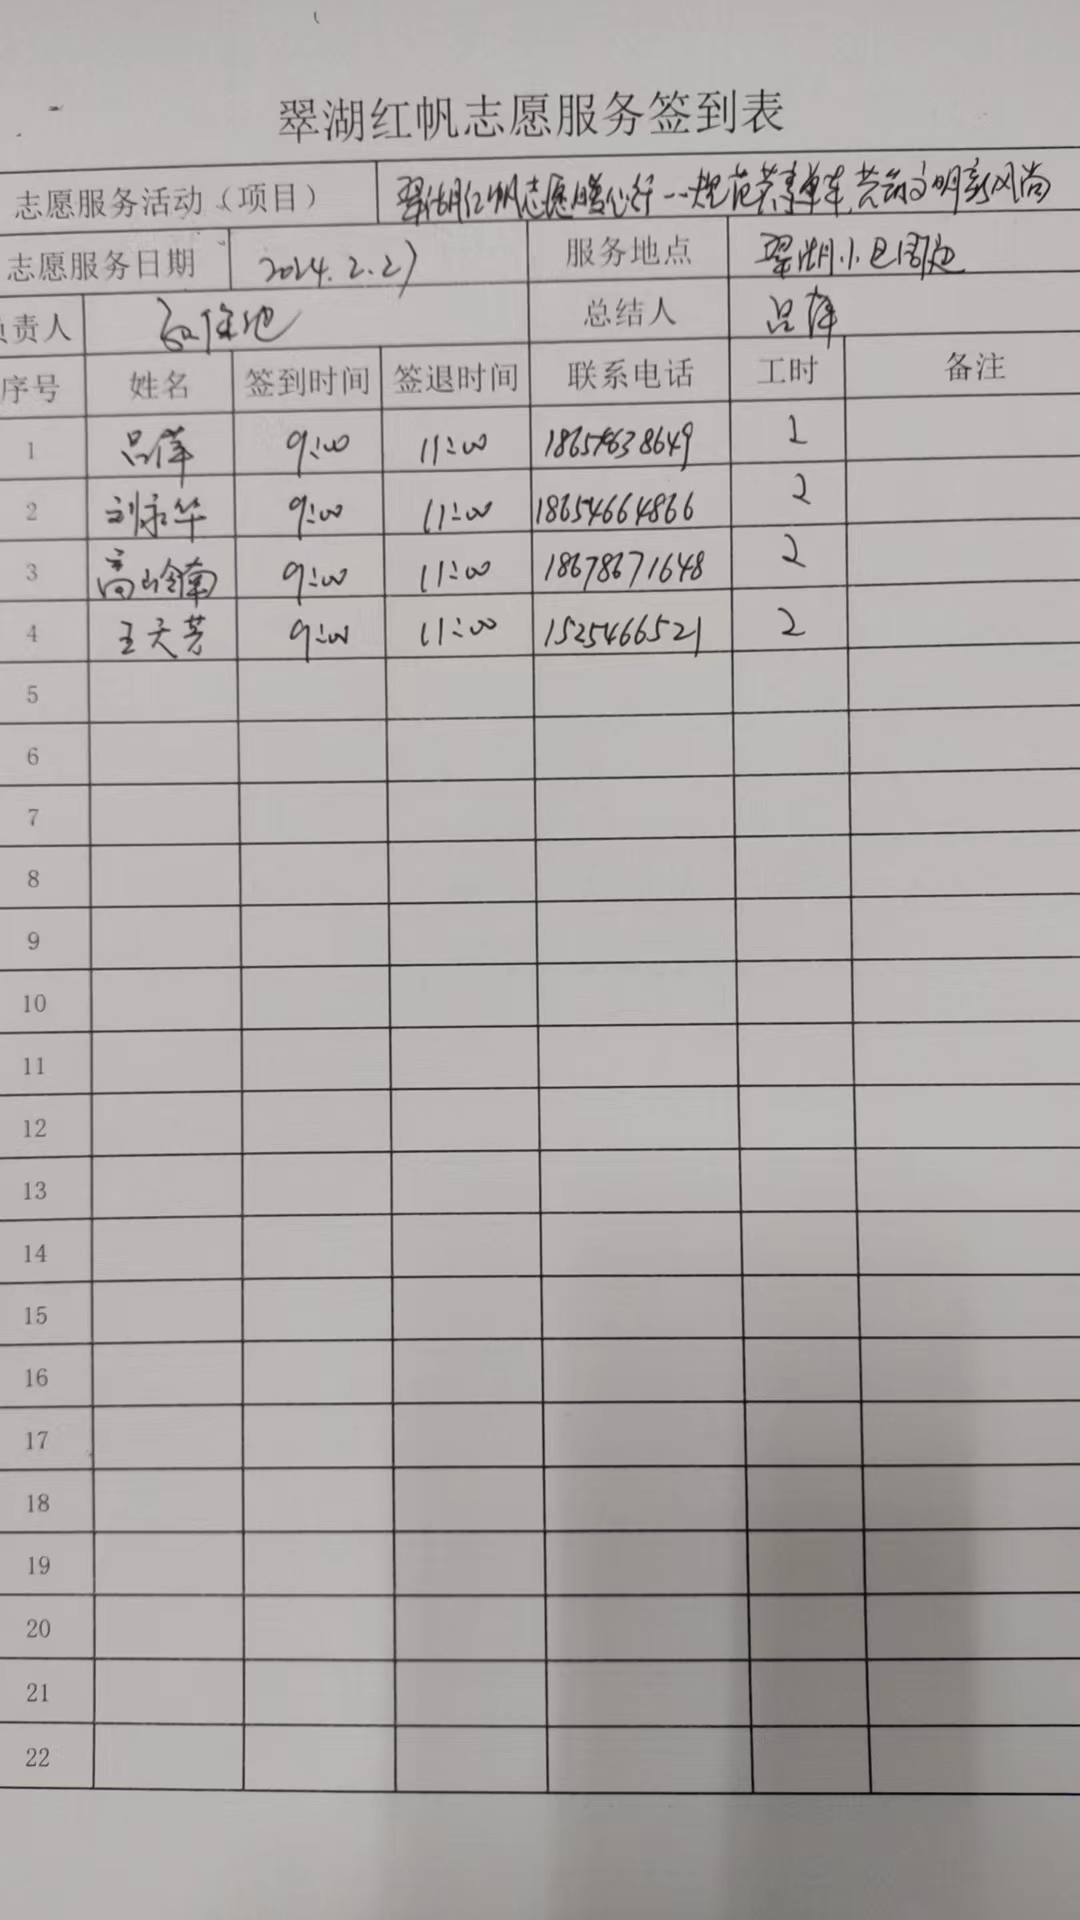 翠湖红帆志愿服务签到表
志愿服务活动（项目） 翠湖红帆志愿暖心行--规范共享单车,共筑文明新风尚
志愿服务日期 2024.2.27 服务地点 翠湖小区周边
负责人 总结人 吕萍
序号 姓名 签到时间 签退时间 联系电话 工时 备注
1 吕萍 9:00 11:00 2
2 刘永华 9:00 11:00 18654664866 2
3 高岭南 9:00 11:00 18678671648 2
4 王天芳 9:00 11:00 1525466521 2
5
6
7
8
9
10
11
12
13
14
15
16
17
18
19
20
21
22